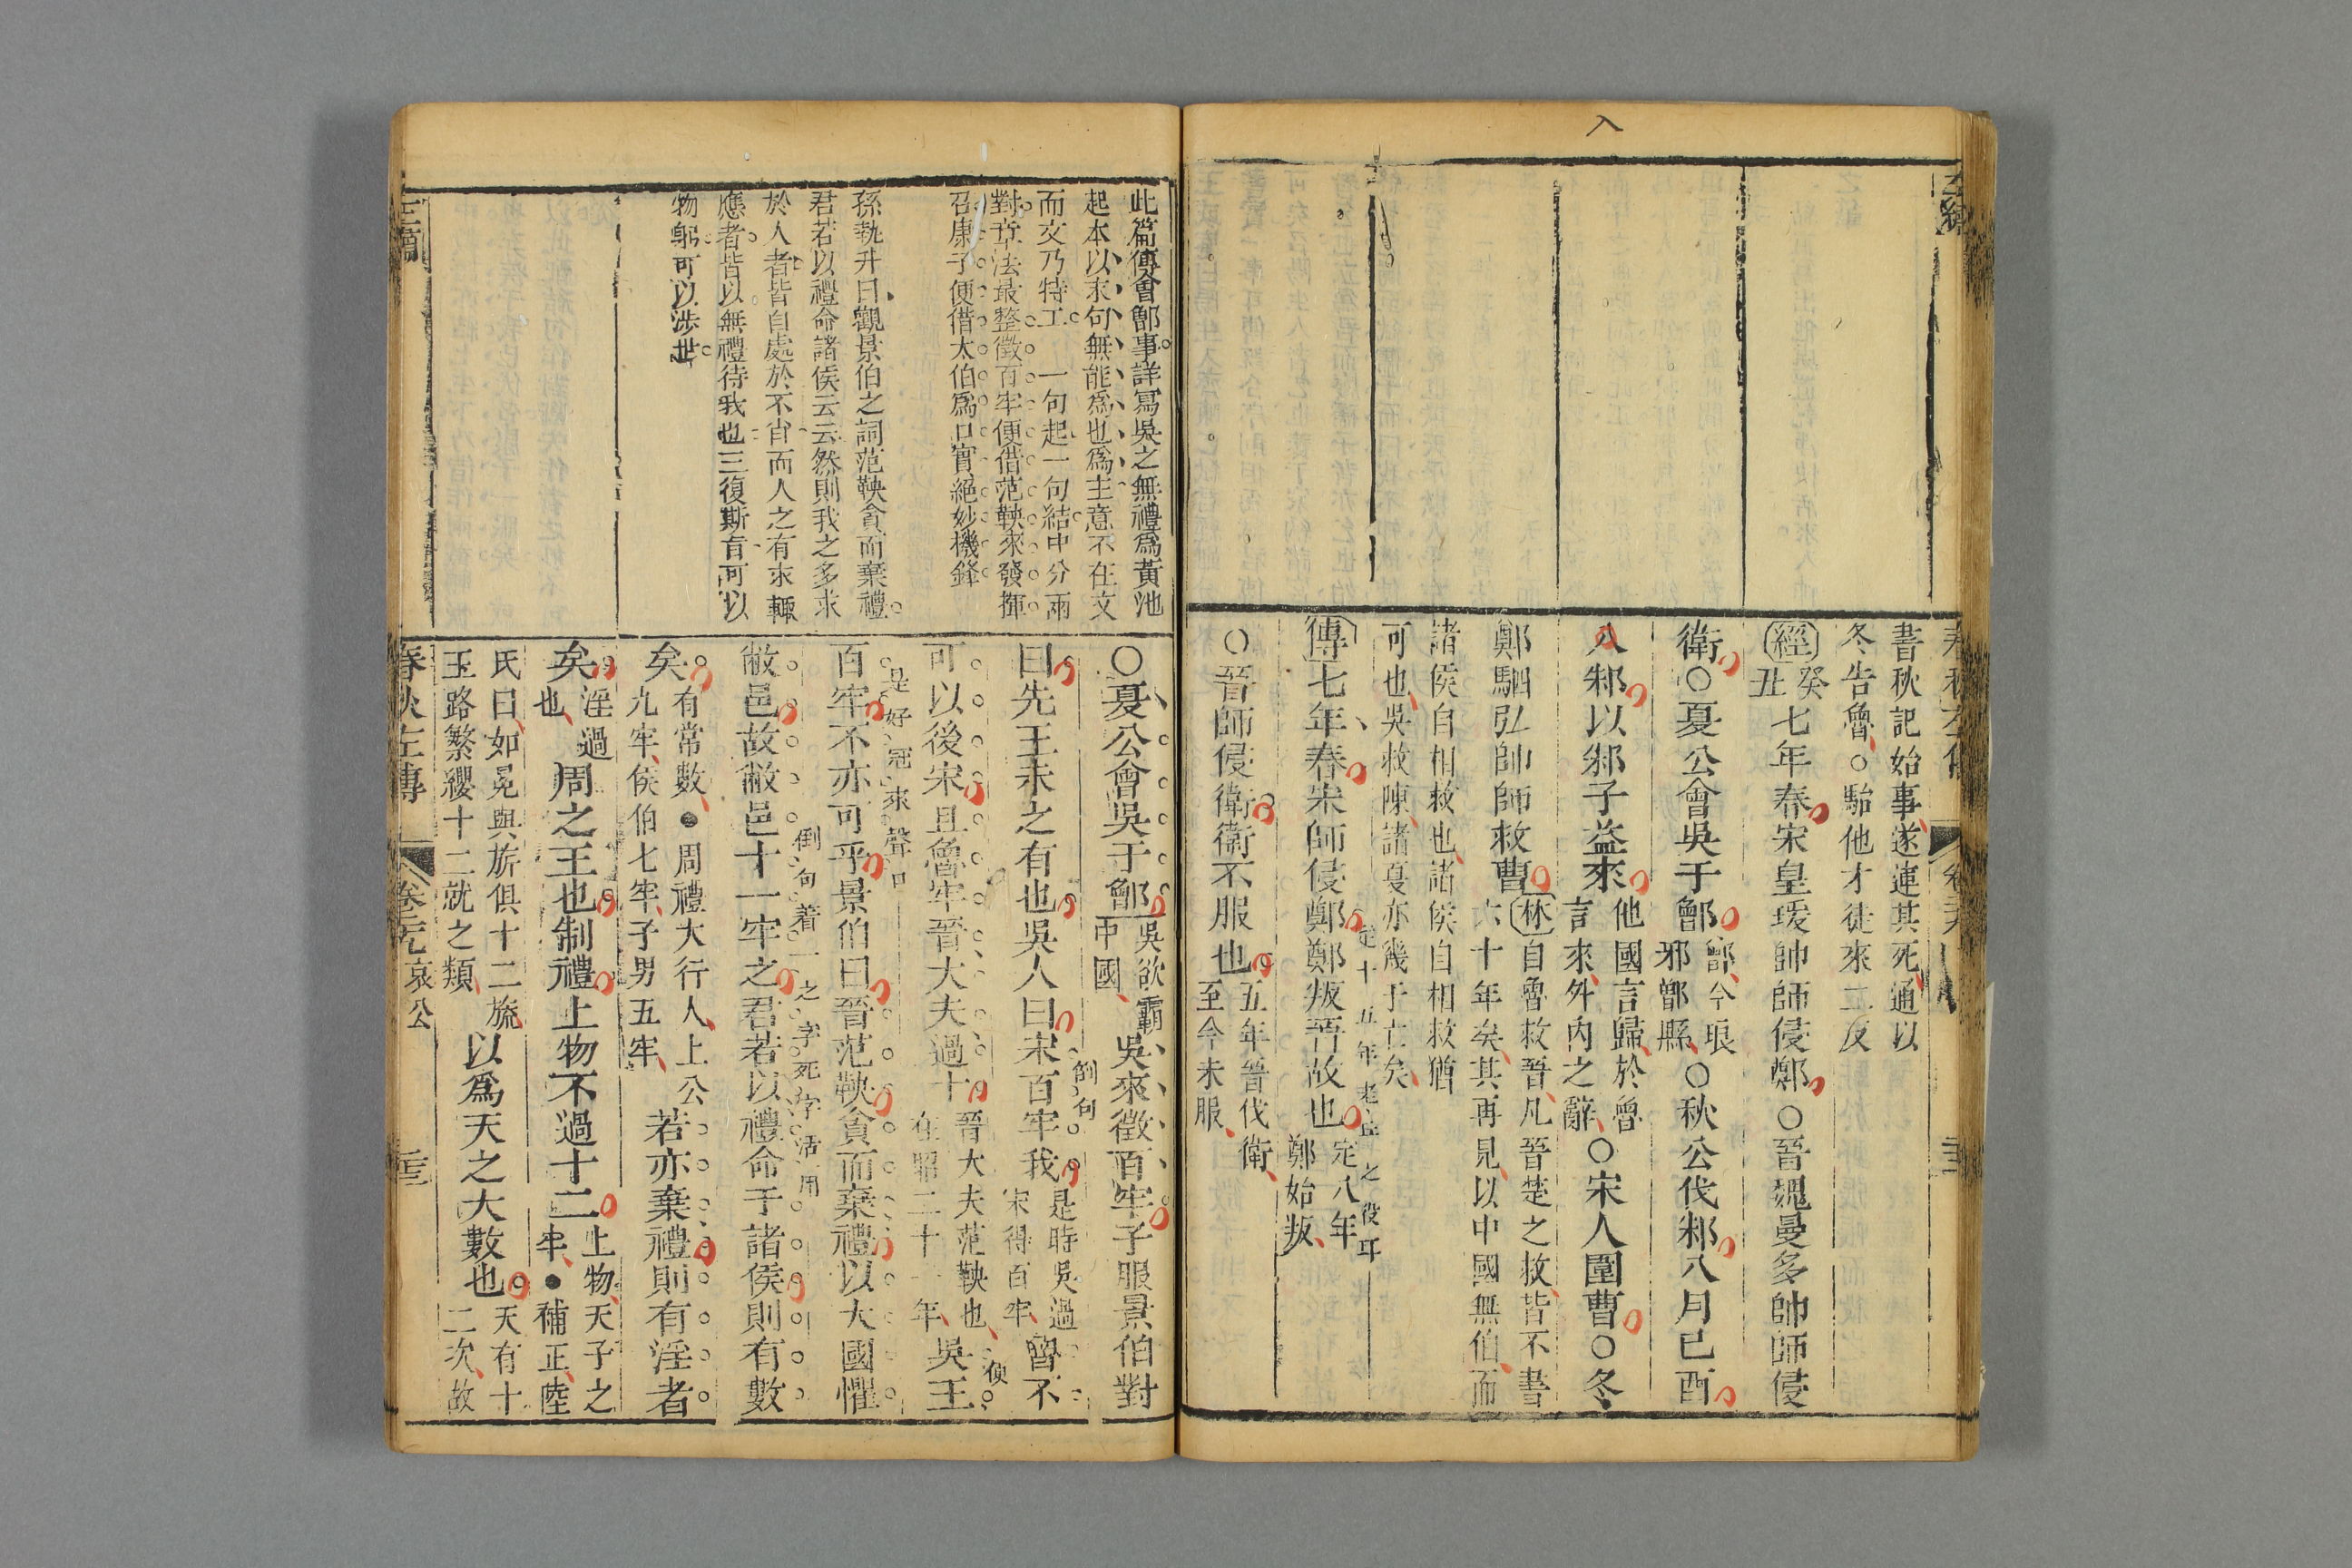 入
左繡
春秋左傳
卷 三
書秋記始事、遂連其死、通以
冬告魯、○駘他才徒來二反
經癸丑七年春宋皇瑗帥師侵鄭○晉魏曼多帥師侵
衛○夏公會吳于鄫鄫今琅邪鄫縣○秋公伐邾八月已酉
入邾以邾子益來他國言歸、於魯言來、外內之辭、○宋人圍曹○冬
鄭駟弘帥師救曹林自魯救晉、凡晉楚之救、皆不書六十年矣、其再見、以中國無伯、而
諸侯自相救也、諸侯自相救猶
可也、吳救陳、諸夏亦幾于亡矣、
傳七年春宋師侵鄭鄭叛晉故也定八年鄭始叛、
定十五年老丘之役耳
○晉師侵衛衛不服也五年晉伐衛、至今未服、
此篇傳會鄫事詳寫吳之無禮為黃池
起本以末句無能為也為主意不在文
而文乃特工一句起一句結中分兩
對章法最整徵百牢便借范鞅來發揮
召康子便借太伯為口實絕妙機鋒
孫執升曰觀景伯之詞范鞅貪而棄禮
君若以禮命諸侯云云然則我之多求
於人者皆自處於不肖而人之有求輒
應者皆以無禮待我也三復斯言可以
物躬可以涉世
○夏公會吳于鄫吳欲霸中國、吳來徵百牢子服景伯對
曰先王未之有也吳人曰宋百牢我是時吳過宋得百牢、魯不
倒句
可以後宋且魯牢晉大夫過十晉大夫范鞅也、在昭二十一年、吳王
便
百牢不亦可乎景伯曰晉范鞅貪而棄禮以大國懼
是好冠來聲口
敝邑故敝邑十一牢之君若以禮命于諸侯則有數
倒句着一之字死字活用
矣有常數、●周禮大行人、上公九牢、侯伯七牢、子男五牢、若亦棄禮則有淫者
矣淫過也、周之王也制禮上物不過十二上物、天子之牢、●補正、陸
氏曰、如冕與旂俱十二旒、玉路繁纓十二就之類、以為天之大數也天有十二次、故
春秋左傳
卷元
哀公
三